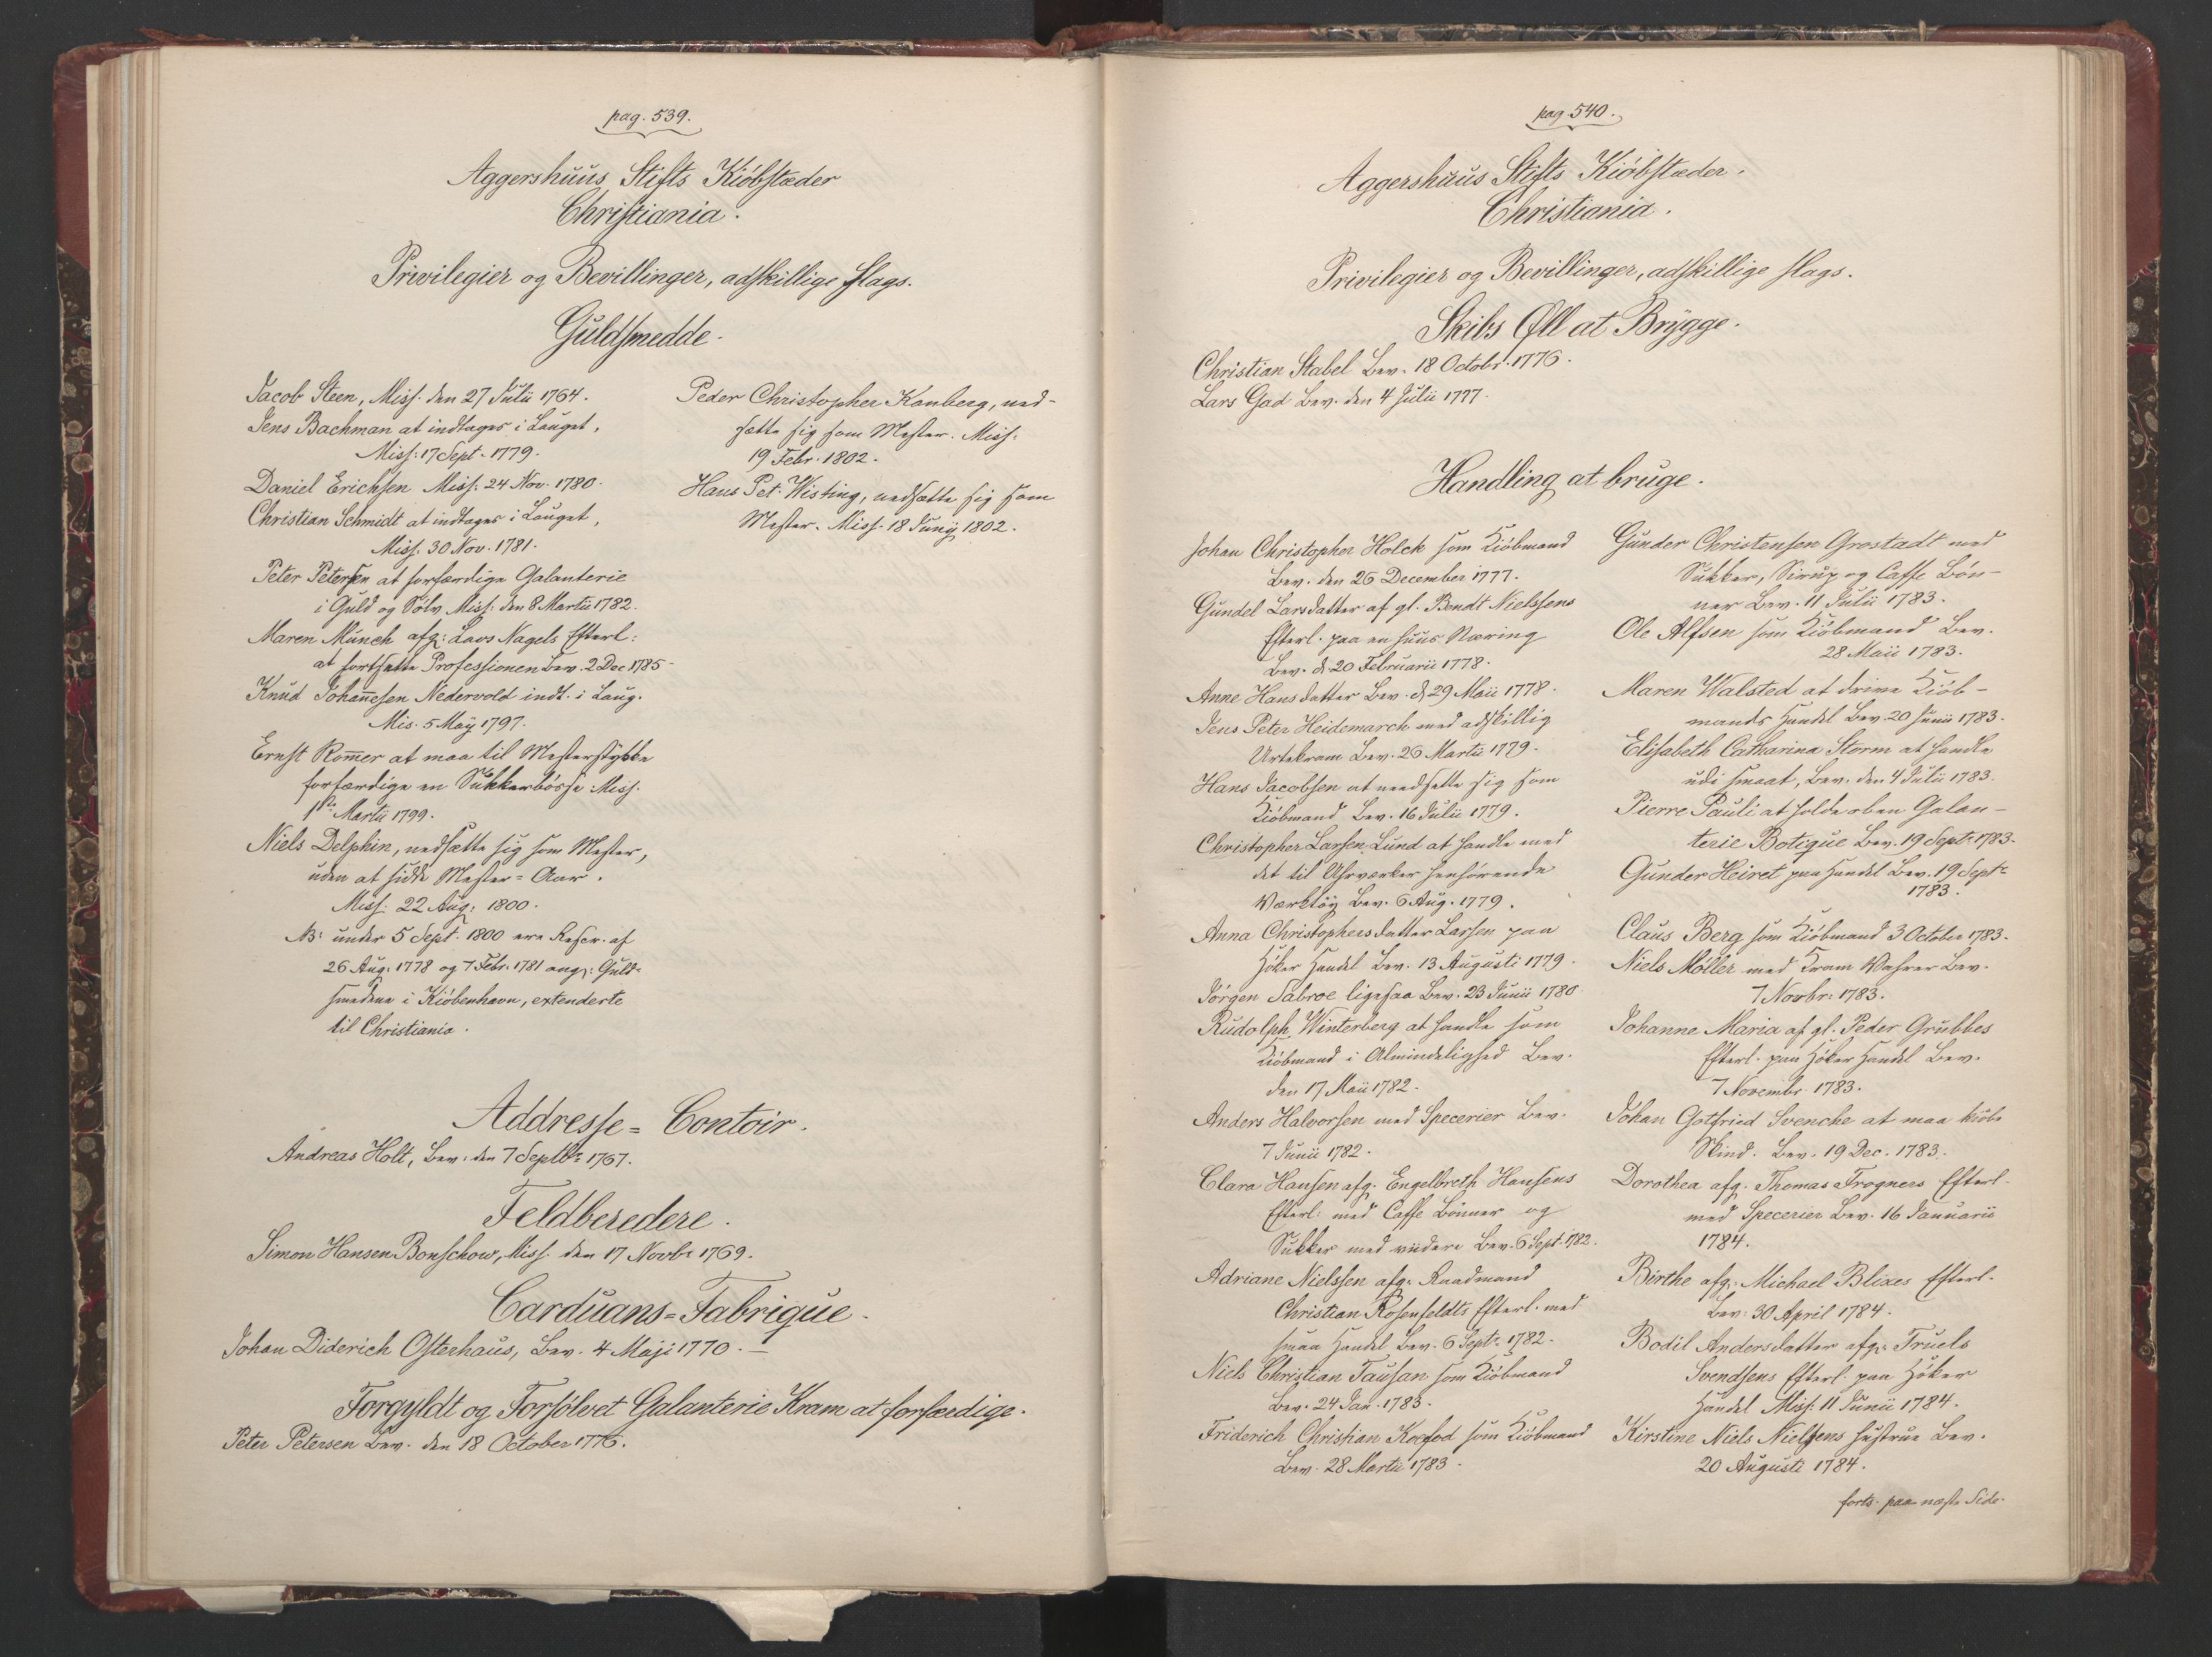 pag. 539.
Aggershuus Stifts Kiöbstæder
Christiania.
Privilegier og Bevillinger, adskillige slags.
Guldsmedde.
Jacob Steen, Miss: den 27 Julii 1764.
Jens Bachman at indtages i Lauget,
Miss: 17 Sept. 1779.
Daniel Erichsen Miss: 24 Nov. 1780.
Christian Schmidt at indtages i Lauget,
Miss. 30 Nov. 1781.
Peter Petersen at forfærdige Galanterie
i Guld og Sölv Miss: den 8 Martii 1782.
Maren Munch afg: Lars Nagels Efterl:
at fortsætte Professionen Bev. 2 Dec 1785
Knud Johan̄esen Nedervold indt. i Laug.
Mis. 5 May 1797.
Ernst Rom̄er at maa til Mesterstykke
forfærdige en Sukkerbösse Miss.
1ste Martii 1799.
Niels Delphin, nedsætte sig som Mester,
uden at sidde Mester=Aar.
Miss: 22 Aug: 1800.
NB: under 5 Sept. 1800 ere Rescr. af
26 Aug: 1778 og 7 Febr. 1781 ang: Guld-
smedene i Kiöbenhavn, extenderte
til Christiania.
Peder Christopher Kanberg, ned-
sætte sig som Mester. Miss:
19 Febr. 1802.
Hans Pet. Wisting, nedsætte sig som
Mester. Miss. 18 Junij 1802.
Addresse=Contoir.
Andreas Holt, Bev: den 7 Septbr 1767.
Feldberedere.
Simon Hansen Bonschow, Miss. den 17 Novbr 1769.
Carduans=Fabrique.
Johan Diderich Osterhaus, Bev. 4 Maji 1770.
Forgyldt og Forsölvet Galanterie Kram at forfærdige.
Peter Petersen Bev. den 18 October 1776.
pag. 540.
Aggershuus Stifts Kiöbstæder.
Christiania.
Privilegier og Bevillinger, adskillige slags.
Skibs Øll at Brygge.
Christian Stabel Bev. 18 Octobr. 1776.
Lars Gad Bev. den 4 Julii 1777.
Handling at bruge.
Johan Christopher Holck som Kiöbmand
Bev. den 26 December 1777.
Gundel Larsdatter af gl. Bendt Nielssens
Efterl. paa en huus Næring
Bev. d. 20 Februarii 1778.
Anne Hansdatter Bev. d. 29 Maii 1778.
Jens Peter Heidemarck med adskillig
Urtekram Bev. 26 Martii 1779.
Hans Jacobsen at needsætte sig som
Kiöbmand Bev. 16 Julii 1779.
Christopher Larsen Lund at handle med
det til Uhrværker henhörende
Værktöy Bev. 6 Aug. 1779.
Anna Christophersdatter Larsen paa
Höker Handel Bev. 13 Augusti 1779.
Jörgen Sabroe ligesaa Bev. 23 Junii 1780
Rudolph Winterberg at handle som
Kiöbmand i Almindelighed Bev.
den 17 Maii 1782.
Anders Halvorsen med Specerier Bev.
7 Junii 1782.
Clara Hansen afg. Engelbreth Hansens
Efterl: med Caffe Bönner og
Sukker med viidere Bev. 6 Sept. 1782.
Adriane Nielssen afg. Raadmand
Christian Rosenfeldts Efterl. med
smaa Handel Bev. 6 Septr. 1782.
Niels Christian Tausan som Kiöbmand
Bev. 24 Jan. 1783.
Friderich Christian Koefod som Kiöbmand
Bev. 28 Martii 1783.
Gunder Christensen Grostadt med
Sukker, Sirup og Caffe Bön-
ner Bev. 11 Julii 1783.
Ole Alfsen som Kiöbmand Bev.
28 Maii 1783.
Maren Walsted at drive Kiöb-
mands Handel Bev. 20 Junii 1783.
Elisabeth Catharina Storm at handle
udi smaat, Bev. den 4 Julii 1783.
Pierre Pauli at holde oben Galan-
terie Botique Bev. 19 Sept. 1783.
Gunder Heiret paa Handel Bev. 19 Septr
1783.
Claus Berg som Kiöbmand 3 October 1783.
Niels Möller med Kram Wahrer Bev.
7 Novbr. 1783.
Johanne Maria af gl. Peder Grubbes
Efterl. paa Höker Handel Bev.
7 Novembr 1783.
Johan Gotfried Svencke at maa kiöbe
Skind. Bev. 19 Dec. 1783.
Dorothea afg. Thomas Frogners Efterl.
med Specerier Bev. 16 Januarii
1784.
Birthe afg. Michael Blixes Efterl.
Bev. 30 April 1784.
Bodil Andersdatter afg. Truels
Svendsens Efterl. paa Höker
Handel Miss: 11 Junii 1784.
Kirstine Niels Nielsens Hustrue Bev.
20 Augusti 1784.
forts. paa næste Side.